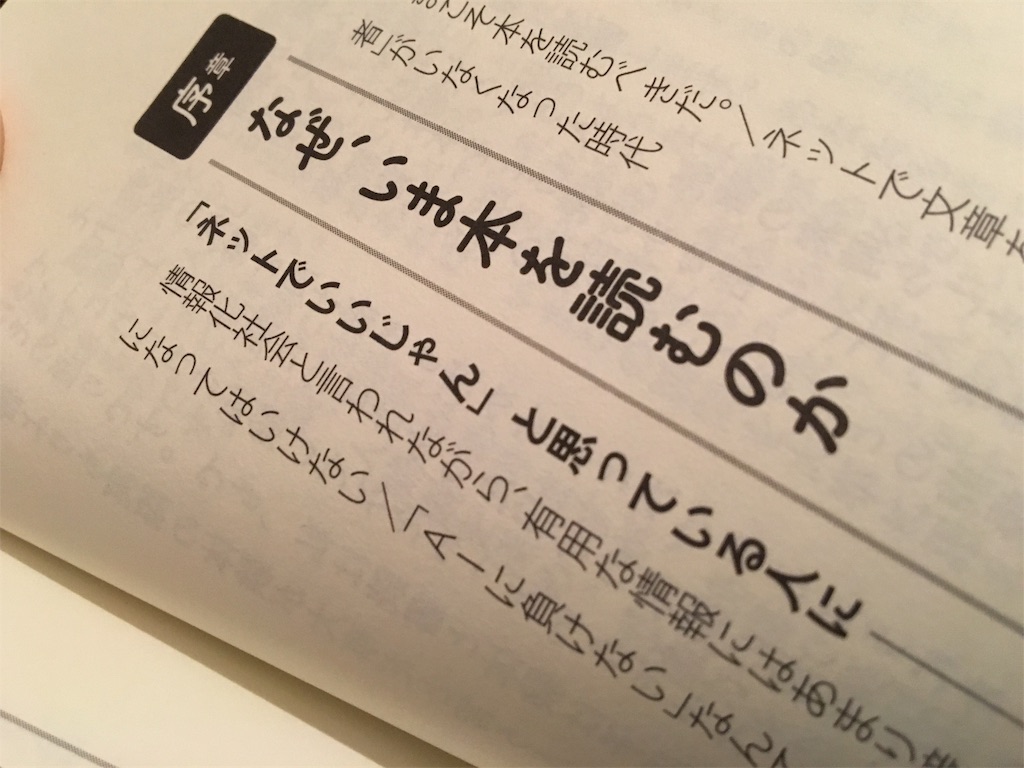 こそ本を読むべきだ。／ネットで文章を
者」がいなくなった時代
序章
なぜ、いま本を読むのか
「ネットでいいじゃん」と思っている人に―
情報化社会と言われながら、有用な情報にはあまり
になってはいけない／「AIに負けない」なんて